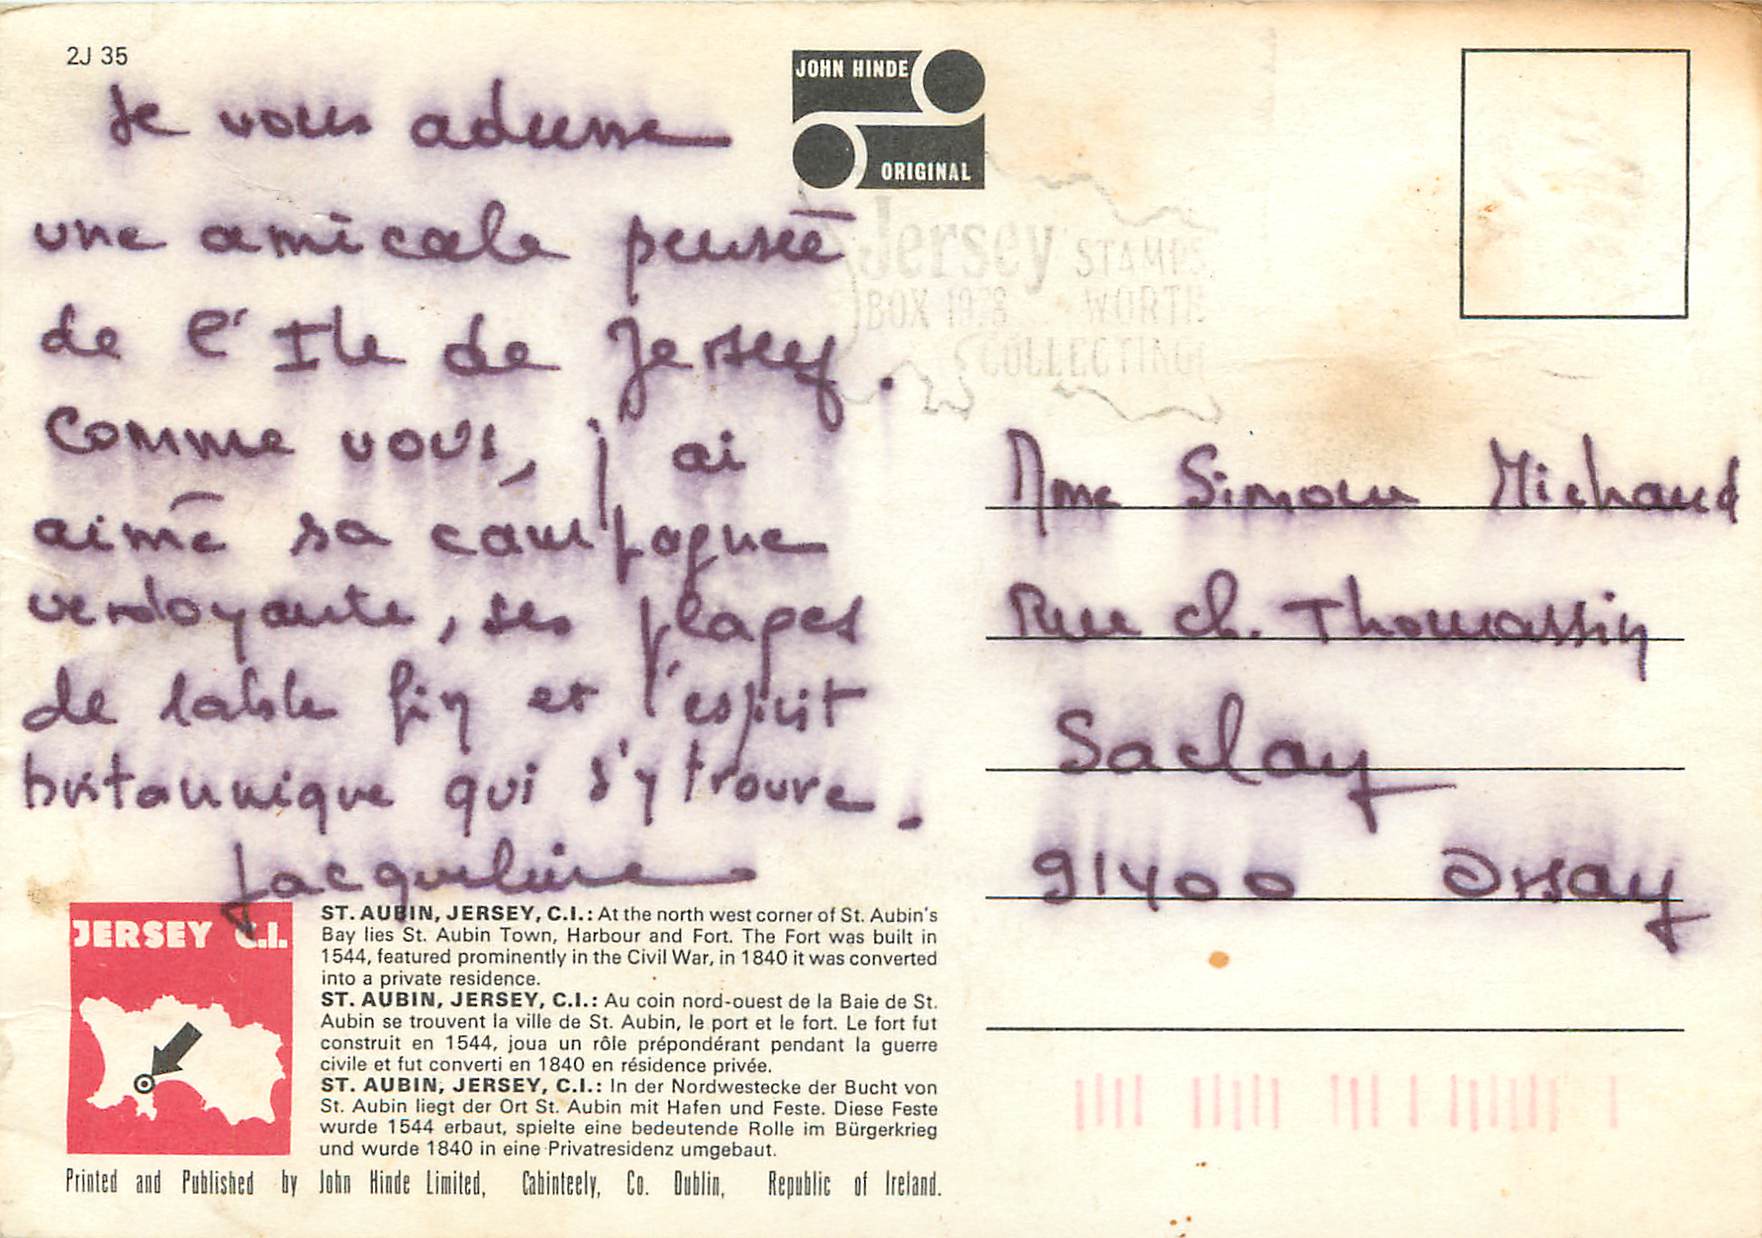 2J 35
JOHN HINDE
ORIGINAL
Je vous adresse
une amicale pensée
de l'Ile de Jersey.
Comme vous, j'ai
aimé sa campagne
verdoyante, ses plages
de sable fin et l'esprit
britannique qui s'y trouve.
Jacqueline
Jersey STAMPS
BOX 1978 WORTH
COLLECTING
Mme Simone Michaud
Rue Ch. Thomassin
Saclay
91400 Orsay
JERSEY C.I.
ST. AUBIN, JERSEY, C.I.: At the north west corner of St. Aubin's
Bay lies St. Aubin Town, Harbour and Fort. The Fort was built in
1544, featured prominently in the Civil War, in 1840 it was converted
into a private residence.
ST. AUBIN, JERSEY, C.I.: Au coin nord-ouest de la Baie de St.
Aubin se trouvent la ville de St. Aubin, le port et le fort. Le fort fut
construit en 1544, joua un rôle prépondérant pendant la guerre
civile et fut converti en 1840 en résidence privée.
ST. AUBIN, JERSEY, C.I.: In der Nordwestecke der Bucht von
St. Aubin liegt der Ort St. Aubin mit Hafen und Feste. Diese Feste
wurde 1544 erbaut, spielte eine bedeutende Rolle im Bürgerkrieg
und wurde 1840 in eine Privatresidenz umgebaut.
Printed and Published by John Hinde Limited, Cabinteely, Co. Dublin, Republic of Ireland.